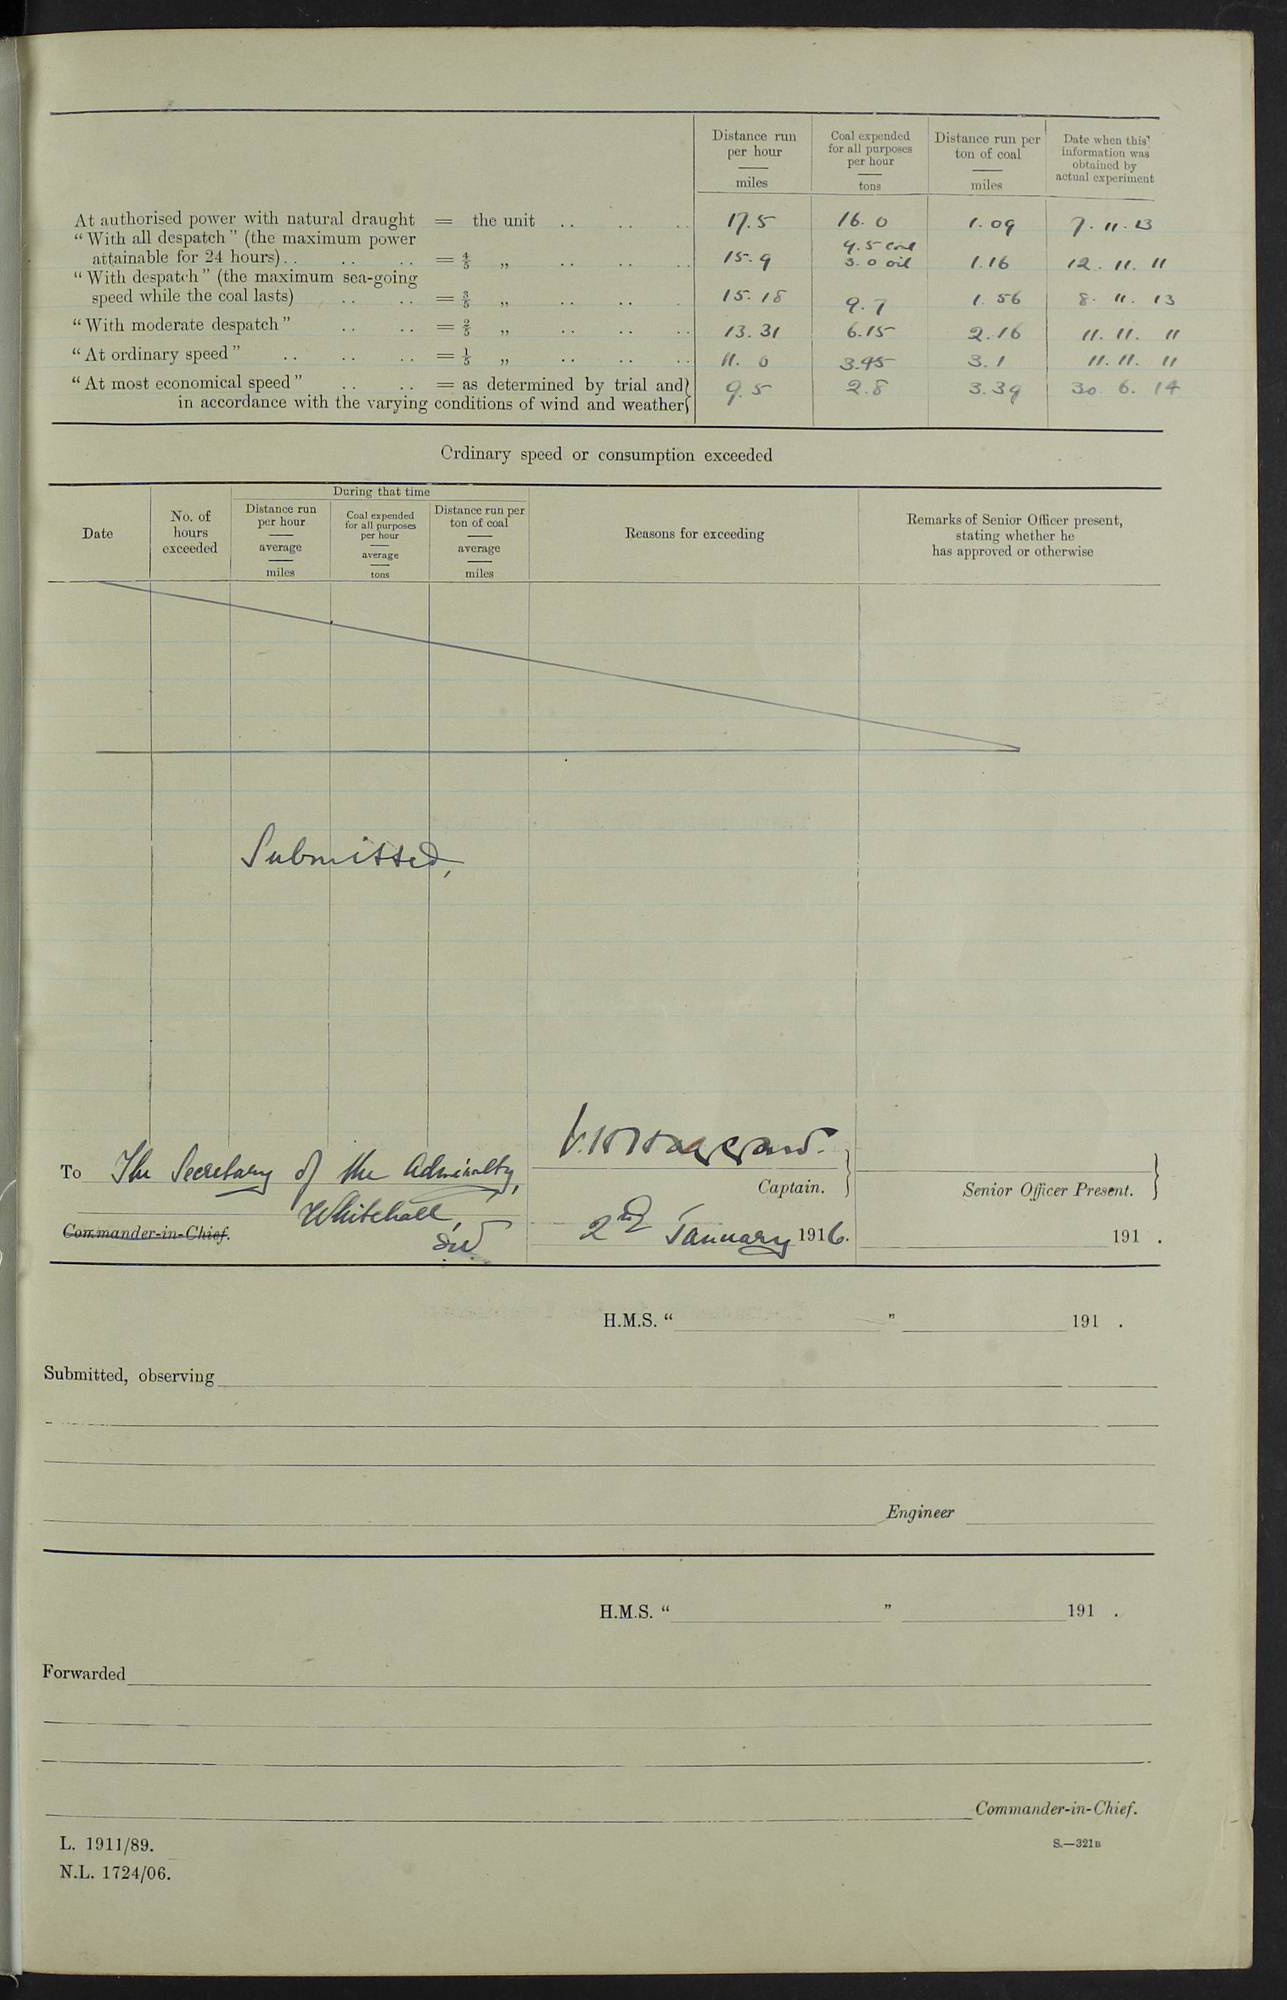 Distance run per hour miles
Coal expended for all purposes per hour tons
Distance run per ton of coal miles
Date when this information was obtained by actual experiment
At authorised power with natural draught = the unit .. .. .. 17.5 16.0 1.09 7.11.13
"With all despatch" (the maximum power
attainable for 24 hours) .. .. .. = 4/5 „ .. .. .. 15.9 9.5 coal 3.0 oil 1.16 12.11.11
"With despatch" (the maximum sea-going
speed while the coal lasts) .. .. = 3/5 „ .. .. .. 15.18 9.7 1.56 8.11.13
"With moderate despatch" .. .. = 2/5 „ .. .. .. 13.31 6.15 2.16 11.11.11
"At ordinary speed" .. .. .. = 1/5 „ .. .. .. 11.0 3.45 3.1 11.11.11
"At most economical speed" .. .. = as determined by trial and} 9.5 2.8 3.39 30.6.14
in accordance with the varying conditions of wind and weather}
Ordinary speed or consumption exceeded
Date
No. of hours exceeded
During that time
Distance run per hour average miles
Coal expended for all purposes per hour average tons
Distance run per ton of coal average miles
Reasons for exceeding
Remarks of Senior Officer present, stating whether he has approved or otherwise
Submitted,
To The Secretary of the Admiralty,
Whitehall,
SW
Commander-in-Chief.
Captain.
2nd January 1916.
Senior Officer Present.
191 .
H.M.S. " " 191 .
Submitted, observing
Engineer
H.M.S. " " 191 .
Forwarded
Commander-in-Chief.
L. 1911/89.
S.—321B
N.L. 1724/06.